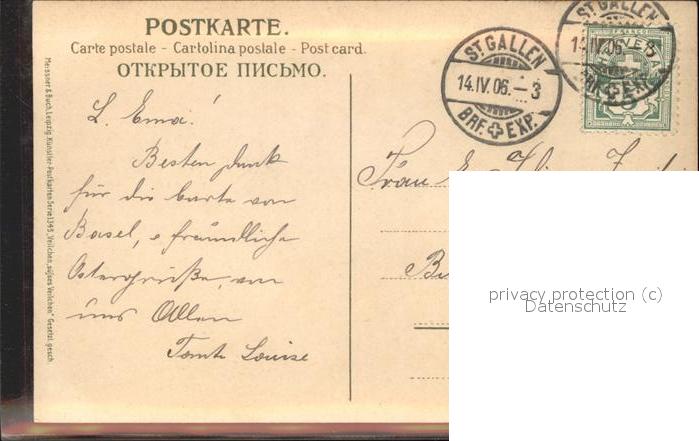 POSTKARTE.
Carte postale - Cartolina postale - Post card.
ОТКРЫТОЕ ПИСЬМО.
Meissner & Buch, Leipzig. Künstler-Postkarten Serie 1345 „Veilchen, süsses Veilchen" Gesetzl. gesch.
L. Emma!
Besten Dank
für die Carte von
Basel, & freundliche
Ostergrüße, von
uns Allen
Tante Louise
ST. GALLEN
14.IV.06.-3
BRF. EXP.
ST. GALLEN
14.IV.06
BRF. EXP.
FRANCO
Frau
privacy protection (c)
Datenschutz